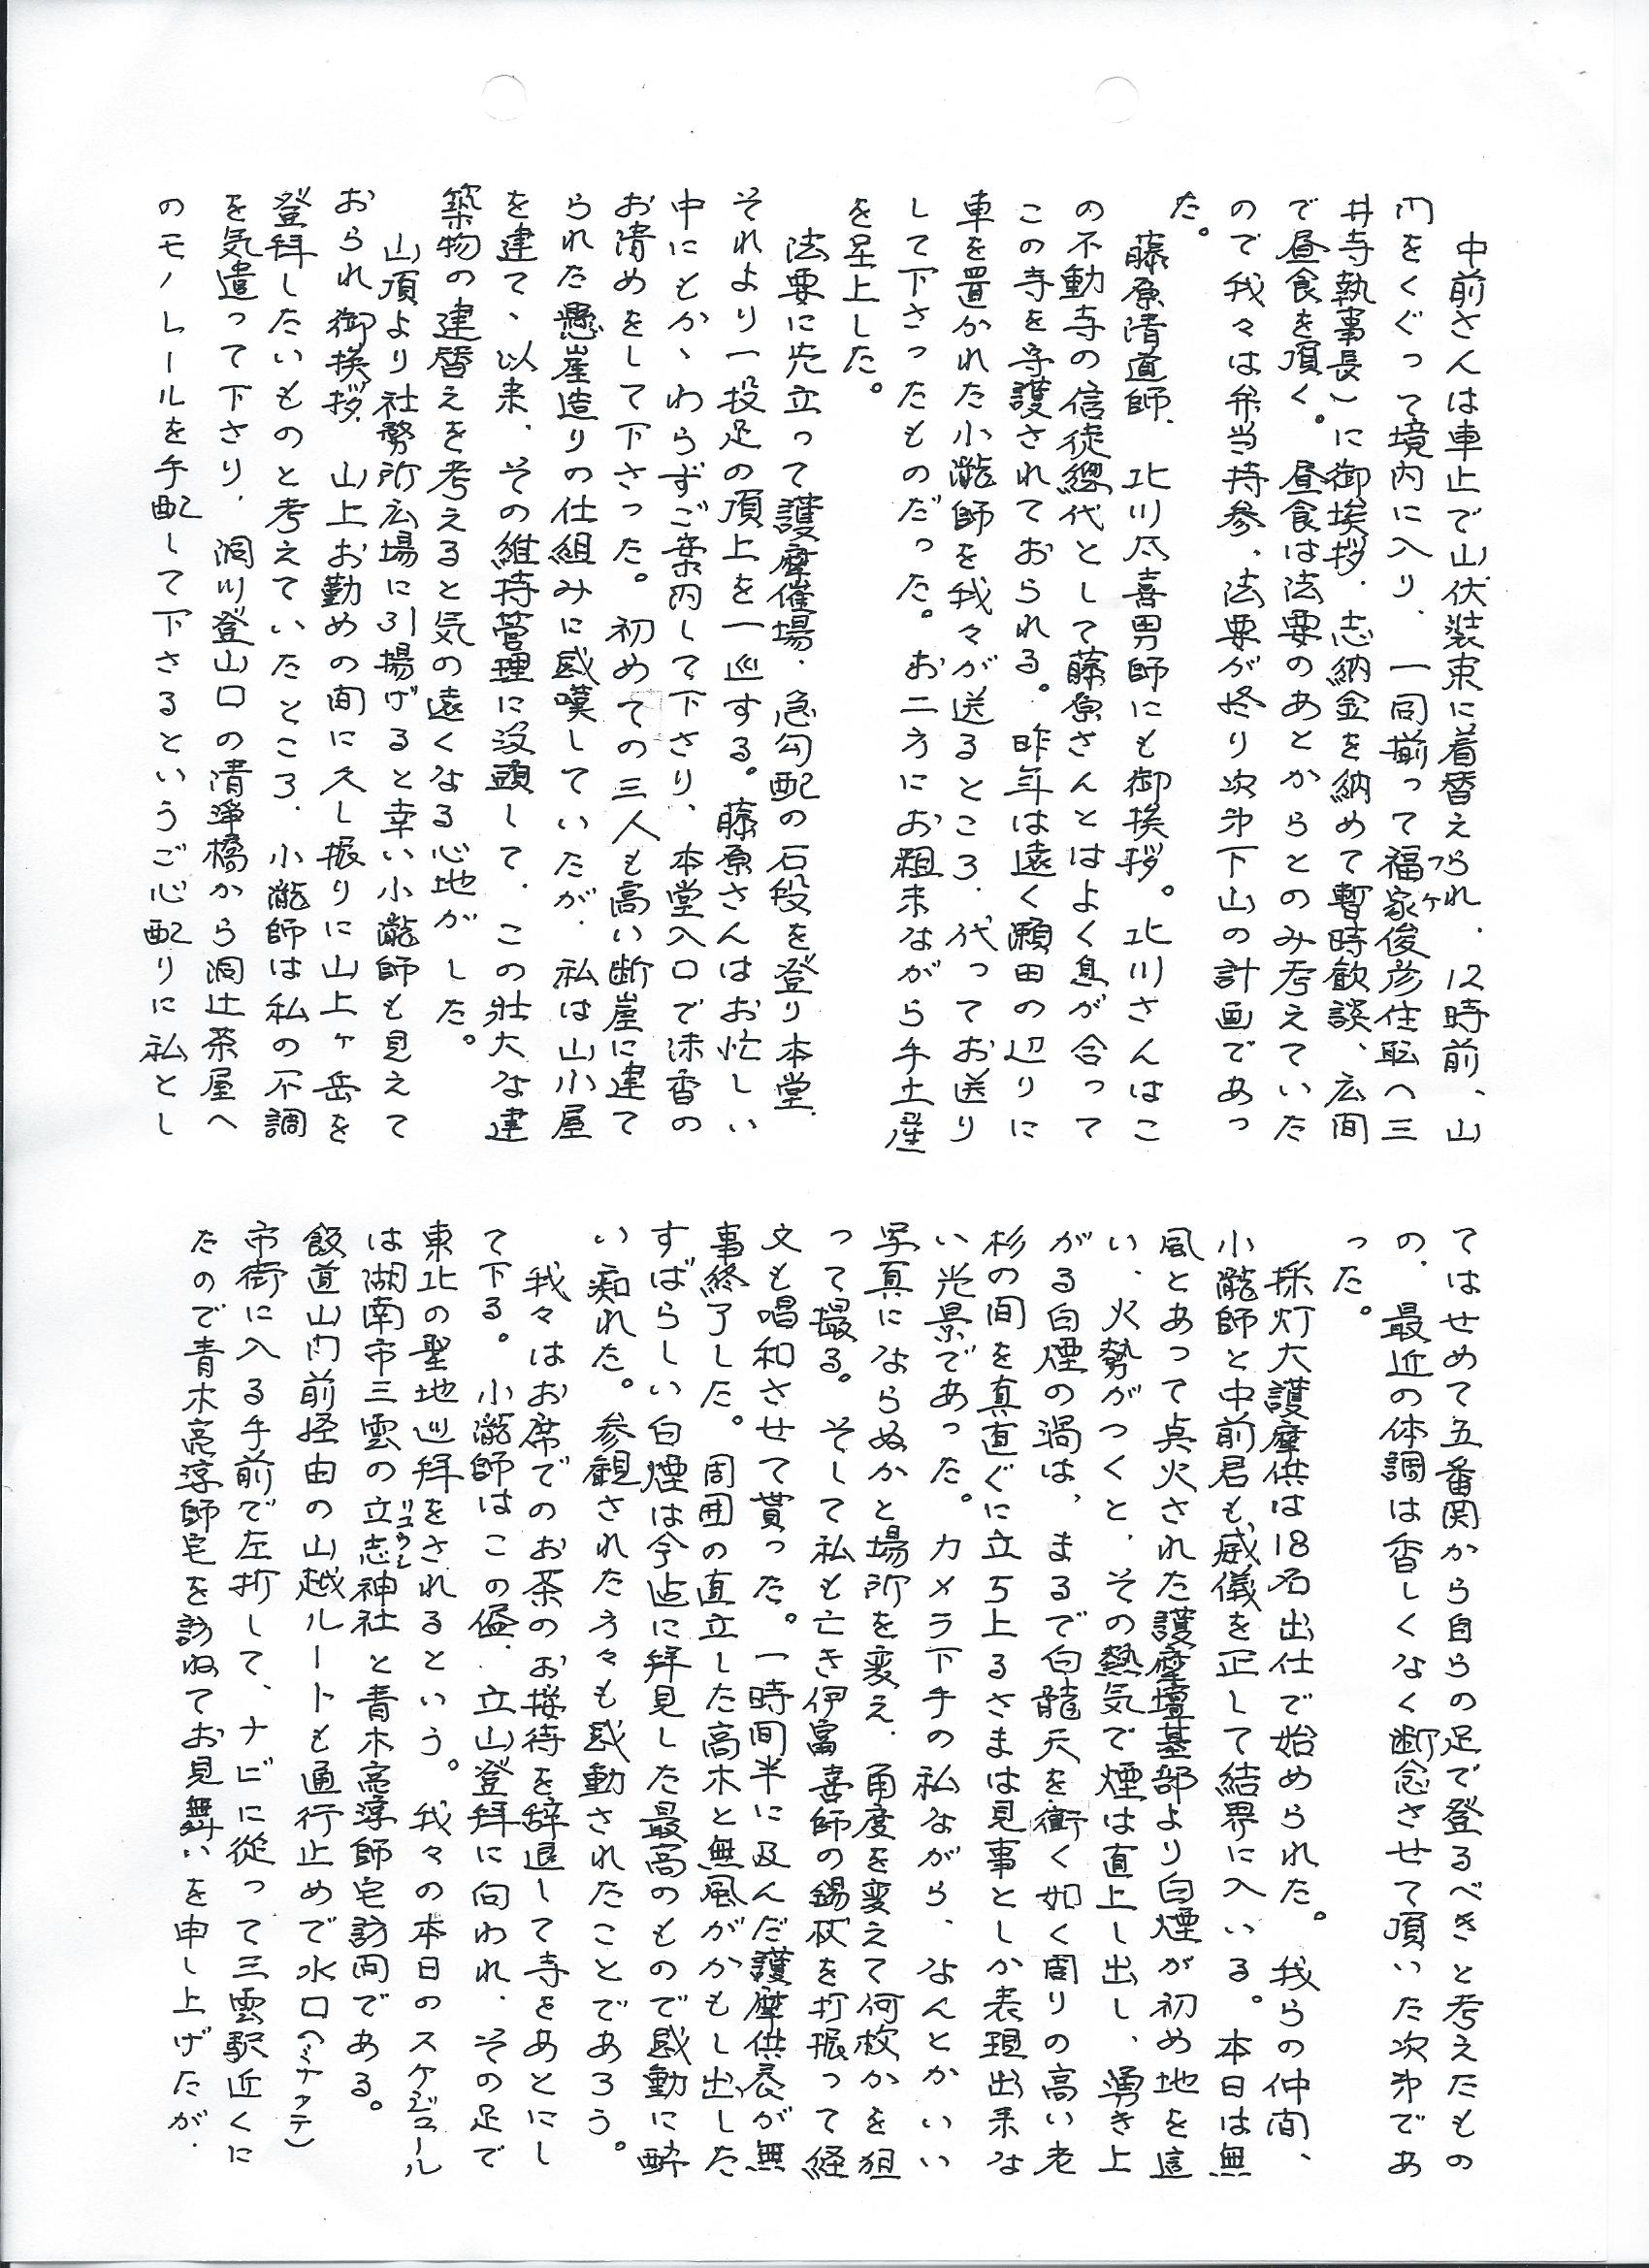 中前さんは車止で山伏装束に着替えられ、12時前、山
門をくぐって境内に入り、一同揃って福家俊彦住職へ三
井寺執事長)に御挨拶、志納金を納めて暫時歓談、広間
で昼食を頂く。昼食は法要のあとからとのみ考えていた
ので我々は弁当持参、法要が終り次第下山の計画であっ
た。
藤原清道師、北川尽喜男師にも御挨拶。北川さんはこ
の不動寺の信徒總代として藤原さんとはよく息が合って
この寺を守護されておられる。昨年は遠く瀬田の辺りに
車を置かれた小瀧師を我々が送るところ、代ってお送り
して下さったものだった。お二方にお粗末ながら手土産
を呈上した。
法要に先立って護摩催場、急勾配の石段を登り本堂、
それより一投足の頂上を一巡する。藤原さんはお忙しい
中にもかゝわらずご案内して下さり、本堂入口で沫香の
お清めをして下さった。初めての三人も高い断崖に建て
られた懸崖造りの仕組みに感嘆していたが、私は山小屋
を建て、以来、その維持管理に没頭して、この壮大な建
築物の建替えを考えると気の遠くなる心地がした。
山頂より社務所広場に引揚げると幸い小瀧師も見えて
おられ御挨拶、山上お勤めの間に久し振りに山上ヶ岳を
登拝したいものと考えていたところ、小瀧師は私の不調
を気遣って下さり、洞川登山口の清浄橋から洞辻茶屋へ
のモノレールを手配して下さるというご心配りに私とし
てはせめて五番関から自らの足で登るべきと考えたもの
の、最近の体調は香しくなく断念させて頂いた次第であ
った。
採灯大護摩供は18名出仕で始められた。我らの仲間、
小瀧師と中前君も威儀を正して結界に入いる。本日は無
風とあって点火された護摩壇基部より白煙が初め地を這
い、火勢がつくと、その熱気で煙は直上し出し、湧き上
がる白煙の渦は、まるで白龍天を衝く如く周りの高い老
杉の間を真直ぐに立ち上るさまは見事としか表現出来な
い光景であった。カメラ下手の私ながら、なんとかいい
写真にならぬかと場所を変え、角度を変えて何枚かを狙
って撮る。そして私も亡き伊富喜師の錫杖を打振って経
文も唱和させて貰った。一時間半に及んだ護摩供養が無
事終了した。周囲の直立した高木と無風がかもし出した
すばらしい白煙は今迄に拝見した最高のもので感動に酔
い痴れた。参観された方々も感動されたことであろう。
我々はお席でのお茶のお接待を辞退して寺をあとにし
て下る。小瀧師はこの侭、立山登拝に向われ、その足で
東北の聖地巡拝をされるという。我々の本日のスケジュール
は湖南市三雲の立志神社と青木高淳師宅訪問である。
飯道山門前経由の山越ルートも通行止めで水口(ミナクテ)
市街に入る手前で左折して、ナビに従って三雲駅近くに
たので青木高淳師宅を訪ねてお見舞いを申し上げたが、